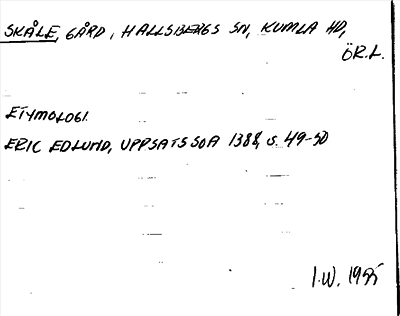 SKÅLE, GÅRD, HALLSBERGS SN, KUMLA HD,
ÖR.L.
ETYMOLOGI.
ERIC EDLUND, UPPSATS SOA 1388, s. 49-50
I.W. 1995